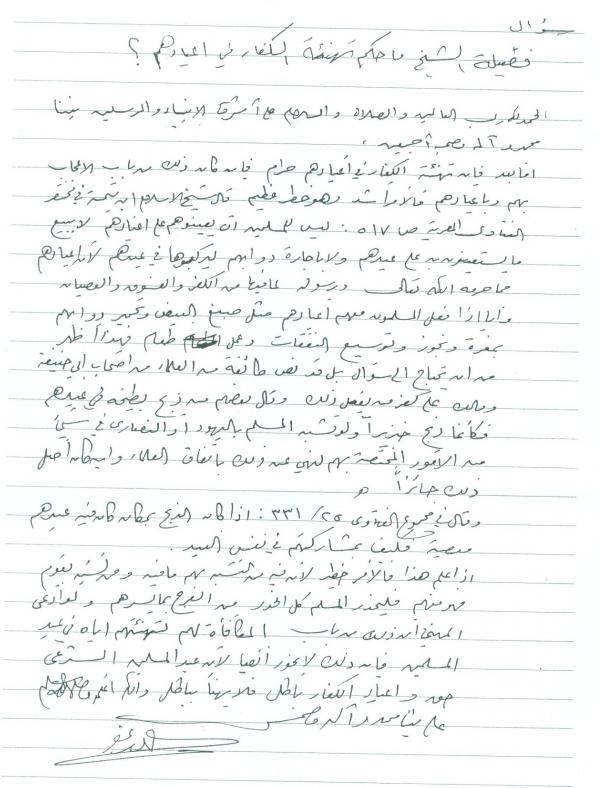 سؤال
فضيلة الشيخ ما حكم تهنئة الكفار في أعيادهم ؟
الحمد لله رب العالمين والصلاة والسلام على أشرف الأنبياء والمرسلين نبينا
محمد وآله وصحبه أجمعين .
أما بعد فإن تهنئة الكفار في أعيادهم حرام فإن كان ذلك من باب الإعجاب
بهم وبأعيادهم فالأمر أشد وهو خطر عظيم قال شيخ الإسلام ابن تيمية في مختصر
الفتاوى المصرية ص ٥١٧ : ليس للمسلمين أن يعينوهم على أعيادهم لا ببيع
ما يستعينون به على عيدهم ولا بإجارة دوابهم ليركبوها في عيدهم لأن أعيادهم
مما حرمه الله تعالى ورسوله لما فيها من الكفر والفسوق والعصيان
وأما إذا فعل المسلمون معهم أعيادهم مثل صبغ البيض وتحمير دوابهم
بمغرة وبخور وتوسيع النفقات وعمل طعام فهذا أظهر
من أن يحتاج إلى سؤال بل قد نص طائفة من العلماء من أصحاب أبي حنيفة
ومالك على كفر من يفعل ذلك وقال بعضهم من ذبح بطيخة في عيدهم
فكأنما ذبح خنزيراً ولو تشبه المسلم باليهود أو النصارى في شيء
من الأمور المختصة بهم لنهي عن ذلك باتفاق العلماء وإن كان أصل
ذلك جائزاً هـ
وقال في مجموع الفتاوى ٢٥/ ٣٣١ : إذا كان الذبح بمكان كان فيه عيدهم
معصية فكيف بمشاركتهم في نفس العيد .
إذا علم هذا فالأمر خطير لأن فيه من التشبه بهم ما فيه ومن تشبه بقوم
فهو منهم فليحذر المسلم كل الحذر من الفرح بأعيادهم ولو ادعى
المهنئ أن ذلك من باب المكافأة لهم لتهنئتهم إياه في عيد
المسلمين فإن ذلك لا يجوز أيضا لأن عيد المسلمين الشرعي
حق وأعياد الكفار باطل فلا يهنأ بباطل والله أعلم
على نبينا محمد وآله وصحبه